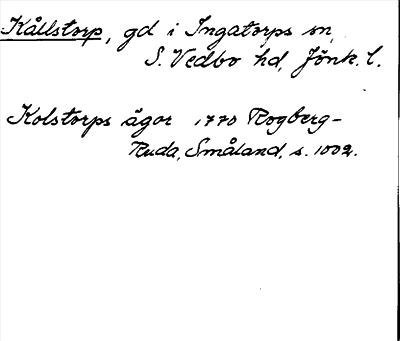 Kållstorp, gd i Ingatorps sn,
S. Vedbo hd, Jönk. l.
Kolstorps ägor 1770 Rogberg-
Ruda, Småland, s. 1002.